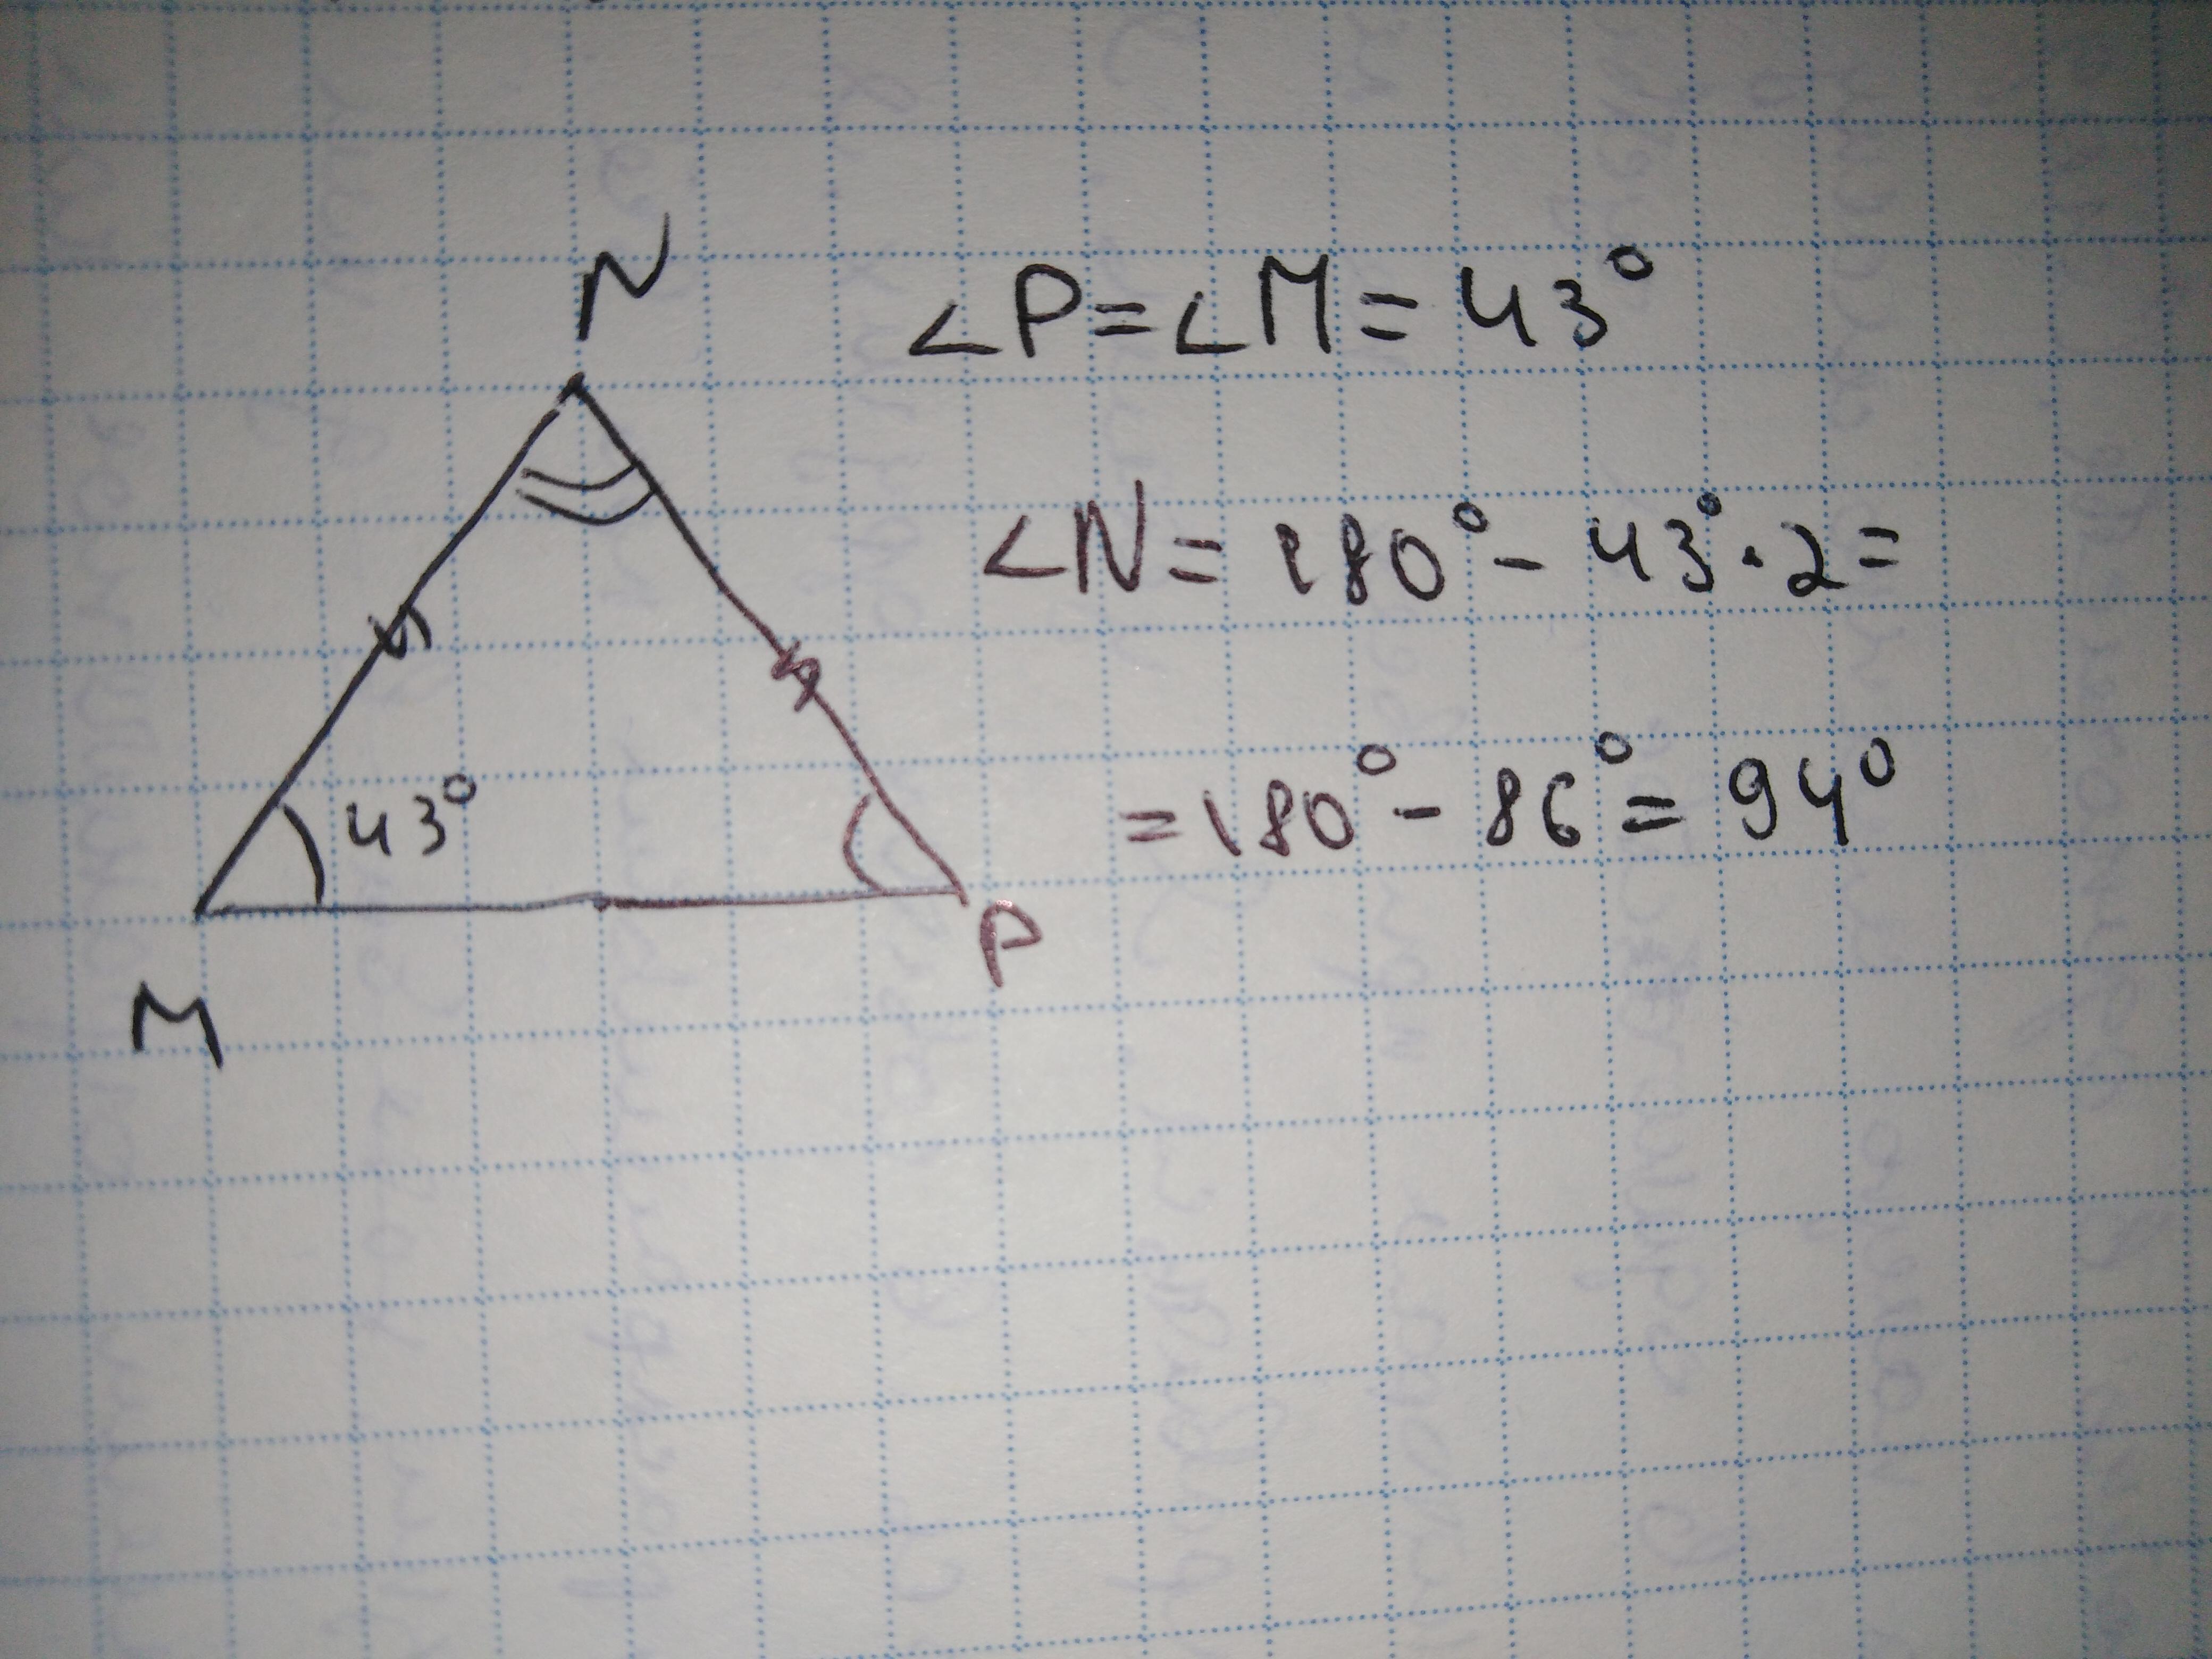 N
∠P=∠M=43°
∠N=180°-43°·2=
=180°-86°=94°
43°
P
M